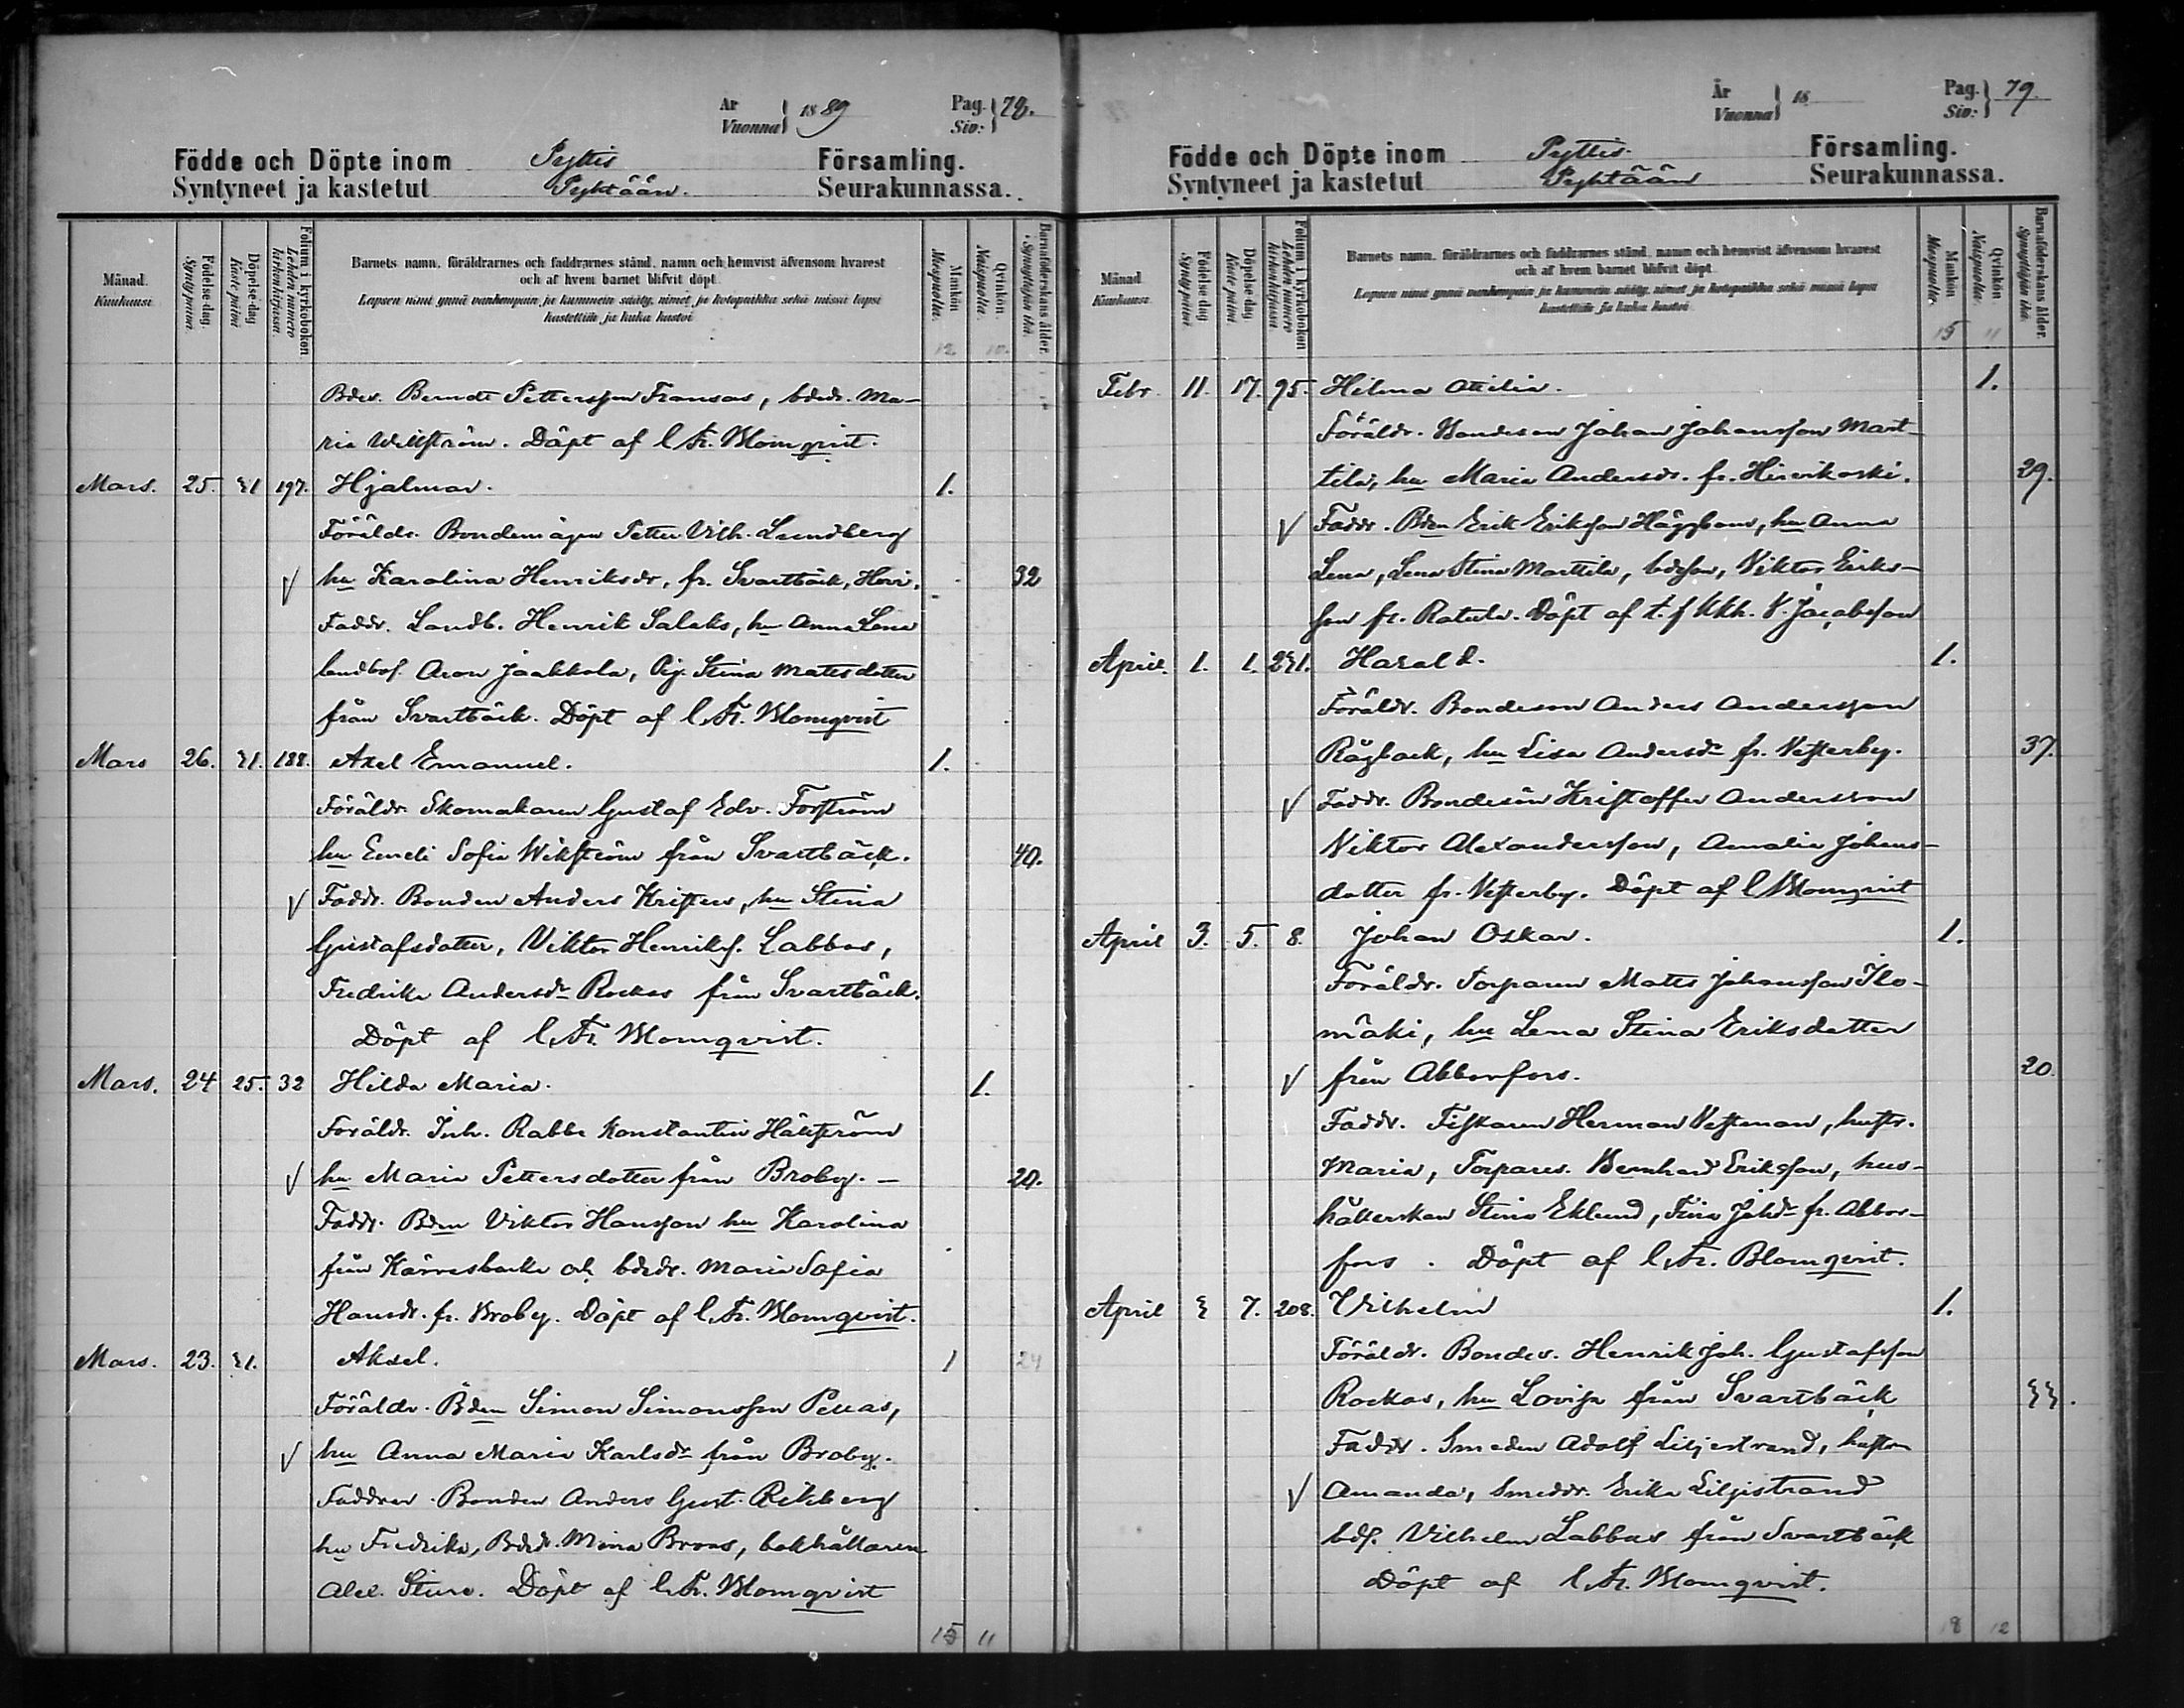 År Vuonna } 1889 Pag. Siv: } 78.
Födde och Döpte inom Pyttis Församling.
Syntyneet ja kastetut Pyhtään. Seurakunnassa.
Månad. Kuukausi.
Födelse-dag. Synty päivä.
Döpelse-dag Kaste päivä
Folium i kyrkoboken Lehden numero kirkonkirjassa.
Barnets namn, föräldrarnes och faddrarnes stånd, namn och hemvist äfvensom hvarest
och af hvem barnet blifvit döpt.
Lapsen nimi ynnä vanhempain ja kummein sääty, nimet ja kotopaikka sekä missä lapsi
kastettiin ja kuka kastoi
Mankön Miespuolia. 12
Qvinkön Naispuolia. 10.
Barnaföderskans ålder. Synnyttäjän ikä.
Bdes. Berndt Pettersson Fransas, bdedr. Ma-
ria Wikström. Döpt af C. Fr. Blomqvist.
Mars. 25. 31 197. Hjalmar. 1.
Föräldr. Bondemågen Petter Vilh. Lundberg
hu Karolina Henriksdr, fr. Svartbäck, 32
Faddr. Landb. Henrik Salaks, hu Anna Lena
landbof. Aron Jaakkola, Pig. Stina Mattsdotter
från Svartbäck. Döpt af C. Fr. Blomqvist
Mars 26. 31. 188. Axel Emanuel. 1.
Föräldr. Skomakaren Gustaf Edv. Forström
hu Emeli Sofia Wikström från Svartbäck. 40.
Faddr. Bonden Anders Kristers, hu Stina
Gustafsdotter, Viktor Henriks. Labbas,
Fredrika Andersdr Rockas från Svartbäck.
Döpt af C. Fr. Blomqvist.
Mars. 24 25. 32 Hilda Maria. 1.
Föräldr. Inh. Rabbe Konstantin Hällström
hu Maria Pettersdotter från Broby. - 20.
Faddr. Bden Viktor Hansson hu Karolina
från Kärresbacke och bdedr. Maria Sofia
Hansdr. fr. Broby. Döpt af C. Fr. Blomqvist.
Mars. 23. 31. Aksel. 1 24
Föräldr. Bden Simon Simonsson Pellas,
hu Anna Maria Karlsdr från Broby.
Faddrar. Bonden Anders Gust. Rikberg
hu Fredrika, Bdedr. Mina Broas, bokhållaren
Alex. Sture. Döpt af C. Fr. Blomqvist
15 11
År Vuonna } 18 Pag. Siv: } 79.
Födde och Döpte inom Pyttis. Församling.
Syntyneet ja kastetut Pyhtään Seurakunnassa.
Månad Kuukausi.
Födelse-dag Synty päivä.
Döpelse-dag Kaste päivä.
Folium i kyrkoboken Lehden numero kirkonkirjassa.
Barnets namn, föräldrarnes och faddrarnes stånd, namn och hemvist äfvensom hvarest
och af hvem barnet blifvit döpt.
Lapsen nimi ynnä vanhempain ja kummein sääty, nimet ja kotopaikka sekä missä lapsi
kastettiin ja kuka kastoi
Mankön Miespuolia. 15
Qvinkön Naispuolia. 11
Barnaföderskans ålder. Synnyttäjän ikä.
Febr. 11. 17. 95. Hilma Otilia. 1.
Föräldr. Bondeson Johan Johansson Mart-
tila, hu Maria Andersdr. fr. Hirvikoski. 29.
Faddr. Bden Erik Eriksson Häggbom, hu Anna
Lena, Lena Stina Marttila, bdeson, Viktor Eriks-
son fr. Ratula. Döpt af t. f Kkh. V. Jacobsson
April. 1. 1. 231. Harald. 1.
Föräldr. Bondeson Anders Andersson
Rågback, hu Lisa Andersdr fr. Vesterby. 37.
Faddr. Bondeson Kristoffer Andersson
Viktor Alexandersson, Amalia Johans-
dotter fr. Vesterby. Döpt af C Blomqvist
April 3. 5. 8. Johan Oskar. 1.
Föräldr. Torparen Matts Johansson Ilo-
mäki, hu Lena Stina Eriksdotter
från Abborfors. 20.
Faddr. Fiskaren Herman Vestman, hustr.
Maria, Torpares. Bernhard Eriksson, hus-
hållerskan Stina Eklund, Fina Johdr fr. Abbor-
fors. Döpt af C. Fr. Blomqvist.
April 3 7. 208. Vilhelm 1.
Föräldr. Bondes. Henrik Joh. Gustafsson
Rockas, hu Lovisa från Svartbäck 33.
Faddr. Smeden Adolf Liljestrand, hustr
Amanda, Smeddr. Erika Liljestrand
bds. Vilhelm Labbas från Svartbäck
Döpt af C. Fr. Blomqvist.
18 12